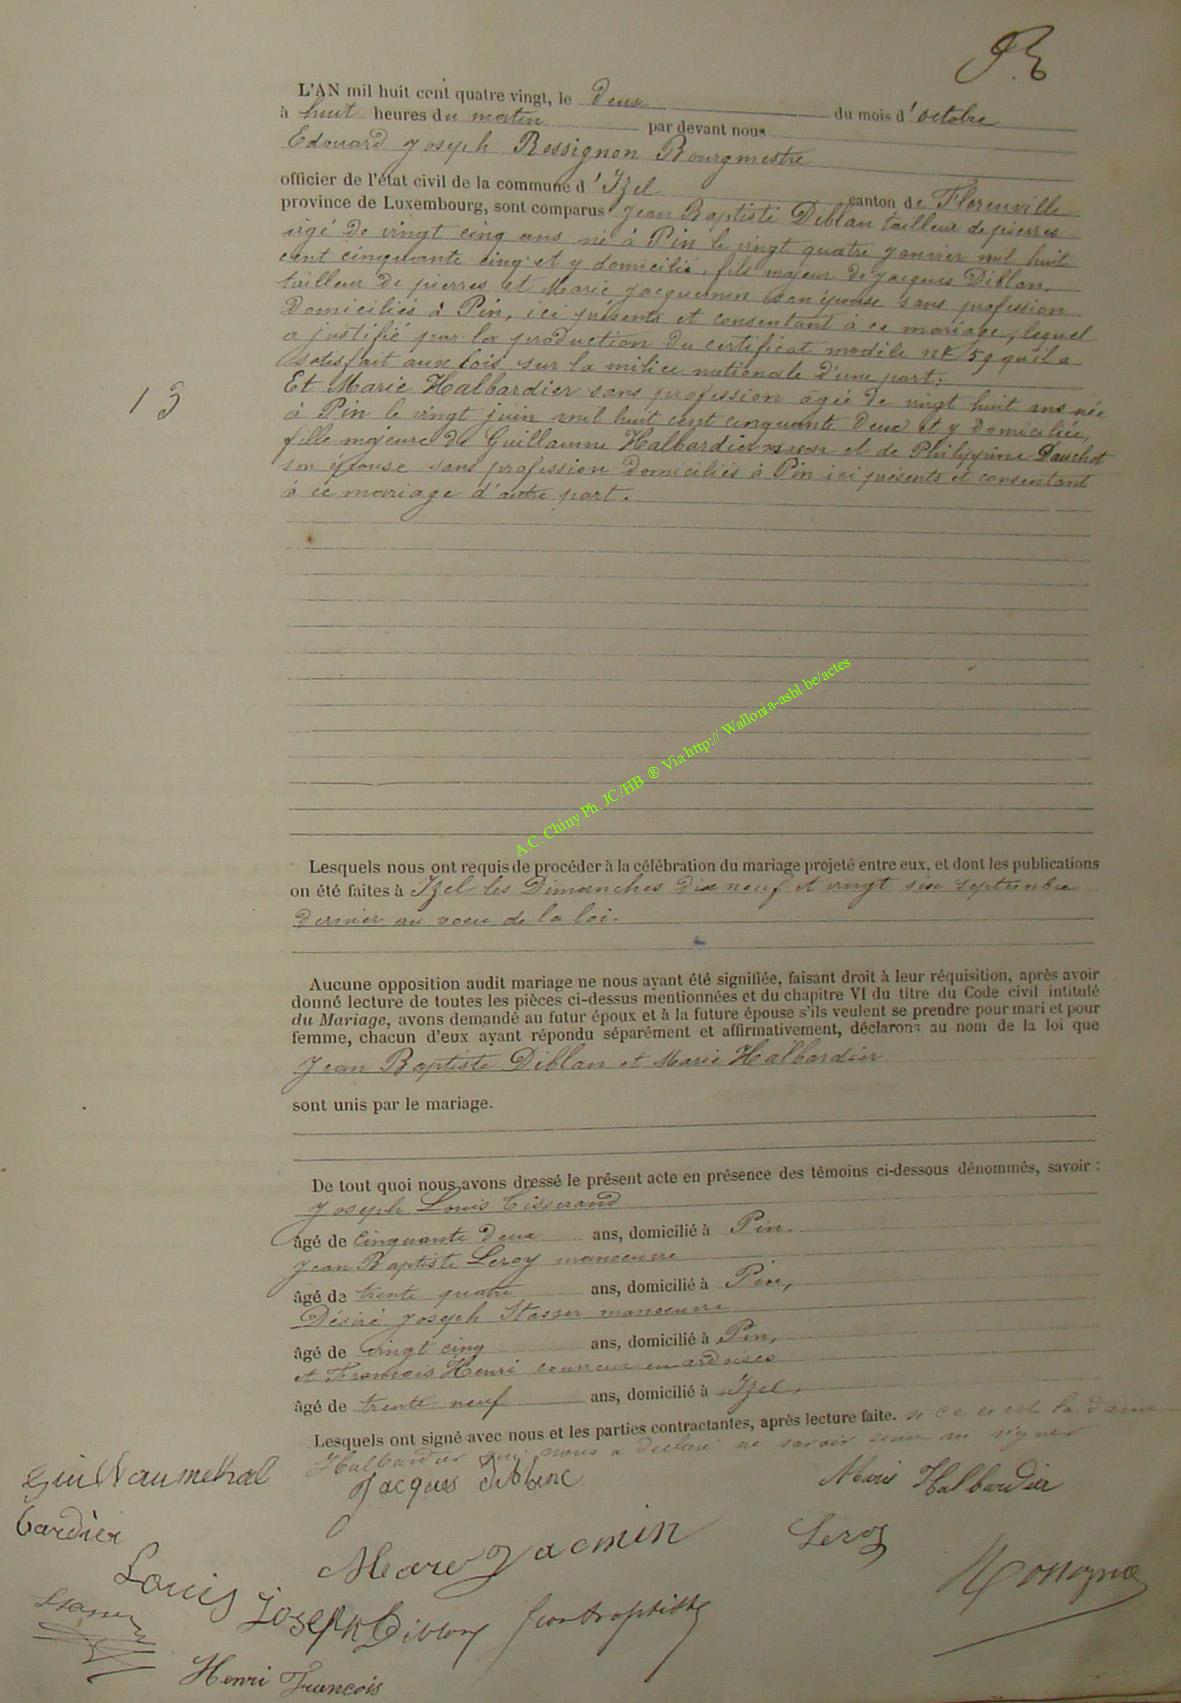 L'AN mil huit cent quatre vingt, le Deux du mois d'octobre
à huit heures du matin par devant nous
Edouard Joseph Rossignon Bourgmestre
officier de l'état civil de la commune d'Izel canton de Florenville
province de Luxembourg, sont comparus Jean Baptiste Diblan tailleur de pierres
agé de vingt cinq ans né à Pin le vingt quatre janvier mil huit
cent cinquante cinq et y domicilié, fils majeur de Jacques Diblan,
tailleur de pierres et Marie Jacquemin son épouse sans profession
Domiciliés à Pin, ici présents et consentant à ce mariage, lequel
a justifié par la production du certificat modèle nº 59 qu'il a
satisfait aux lois sur la milice nationale d'une part;
Et Marie Halbardier sans profession agée de vingt huit ans née
13
à Pin le vingt juin mil huit cent cinquante Deux et y Domiciliée,
fille majeure de Guillaume Halbardier et de Philippine Dauchot
son épouse sans profession Domiciliés à Pin ici présents et consentant
à ce mariage d'autre part.
A.C. Chiny Ph. JC/HB ® Via http:// Wallonia-asbl.be/actes
Lesquels nous ont requis de procéder à la célébration du mariage projeté entre eux, et dont les publications
on été faites à Izel les Dimanches dix neuf et vingt six septembre
dernier au voeu de la loi.
Aucune opposition audit mariage ne nous ayant été signifiée, faisant droit à leur réquisition, après avoir
donné lecture de toutes les pièces ci-dessus mentionnées et du chapitre VI du titre du Code civil intitulé
du Mariage, avons demandé au futur époux et à la future épouse s'ils veulent se prendre pour mari et pour
femme, chacun d'eux ayant répondu séparément et affirmativement, déclarons au nom de la loi que
Jean Baptiste Diblan et Marie Halbardier
sont unis par le mariage.
De tout quoi nous avons dressé le présent acte en présence des témoins ci-dessous dénommés, savoir :
Joseph Louis Tisserand
âgé de cinquante deux ans, domicilié à Pin.
Jean Baptiste Leroy manoeuvre
âgé de trente quatre ans, domicilié à Pin,
Désiré Joseph Stasser manoeuvre
âgé de vingt cinq ans, domicilié à Pin,
et François Henri couvreur en ardoises
âgé de trente neuf ans, domicilié à Izel,
Lesquels ont signé avec nous et les parties contractantes, après lecture faite. si ce n'est la dame
Halbardier qui nous a déclaré ne savoir signer
Guillaume hal
bardier
Jacques Diblan
Marie Halbardier
Marie Jacmin
Leroy
Louis Joseph
Diblan Jean Baptiste
Henri François